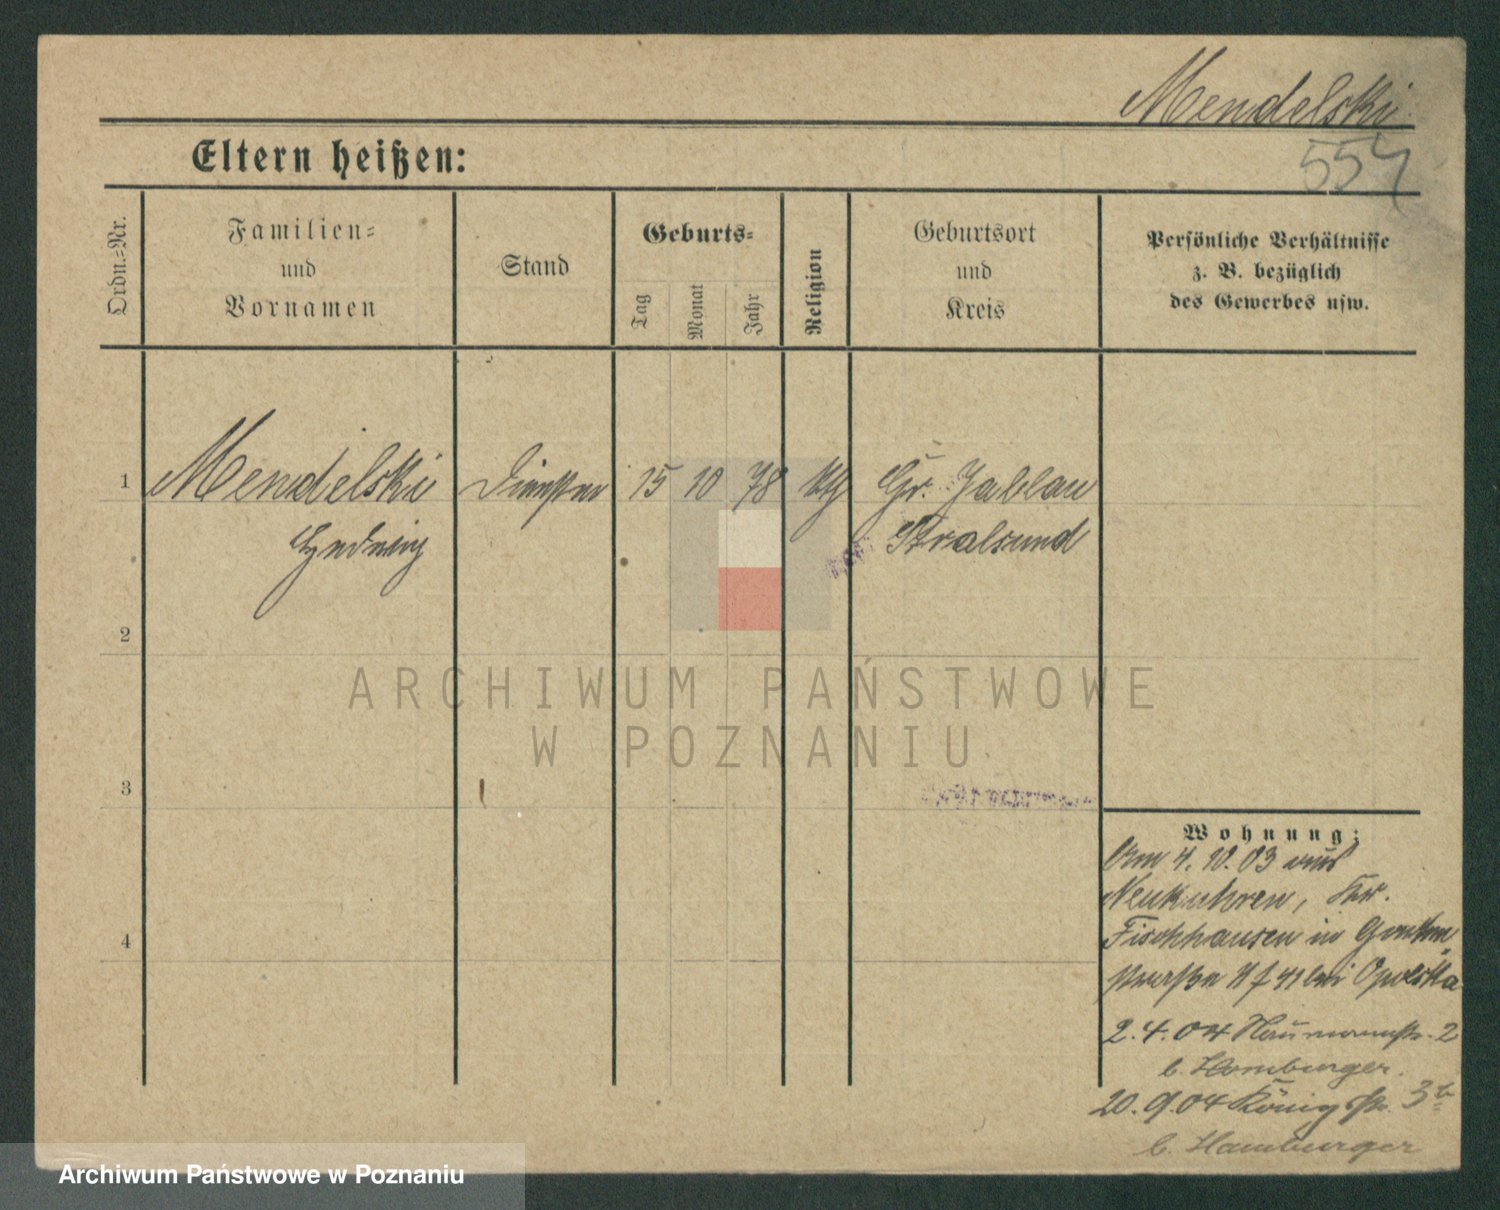 Mendelski
557
Eltern heißen:
Ordn.-Nr.
Familien-
und
Vornamen
Stand
Geburts-
Tag
Monat
Jahr
Religion
Geburtsort
und
Kreis
Persönliche Verhältnisse
z. B. bezüglich
des Gewerbes usw.
1 Mendelski 15 10 78 Gr. Jablau
Hedwig Stralsund
2
3
4
Wohnung:
Am 4. 10. 03 aus
Neukuhren, Kr.
Fischhausen in
straße 41 bei Opolska
2. 4. 04 Naumannstr. 2
b. Hamburger.
20. 9. 04 Königstr. 3
b. Hamburger
ARCHIWUM PAŃSTWOWE
W POZNANIU
Archiwum Państwowe w Poznaniu